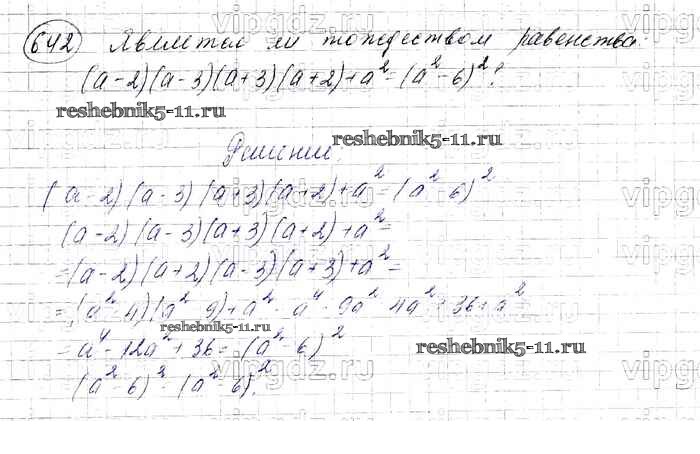 642 Является ли тождеством равенство
(a-2)(a-3)(a+3)(a+2)+a²=(a²-6)²?
reshebnik5-11.ru
reshebnik5-11.ru
Решение.
(a-2)(a-3)(a+3)(a+2)+a²=(a²-6)²
(a-2)(a-3)(a+3)(a+2)+a²=
=(a-2)(a+2)(a-3)(a+3)+a²=
=(a²-4)(a²-9)+a²=a⁴-9a²-4a²+36+a²
reshebnik5-11.ru
=a⁴-12a²+36=(a²-6)²
reshebnik5-11.ru
(a²-6)²=(a²-6)².
vipgdz.ru
vipgdz.ru
vipgdz.ru